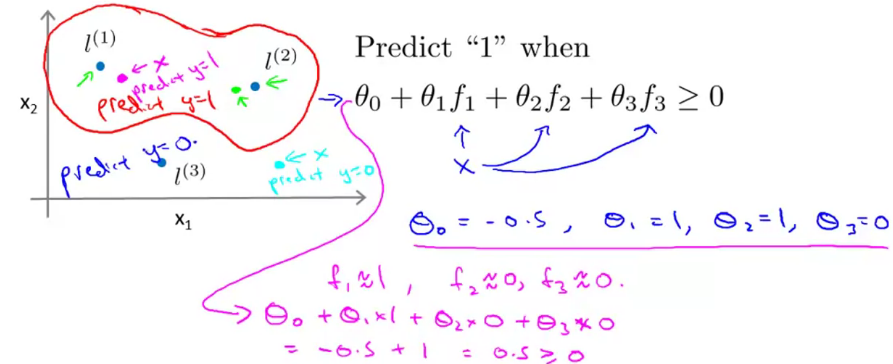 l^{(1)}
← x
predict y=1
l^{(2)}
predict y=1
x_2
predict y=0.
l^{(3)}
← x
predict y=0
x_1
Predict “1” when
→ θ_0 + θ_1 f_1 + θ_2 f_2 + θ_3 f_3 ≥ 0
x
θ_0 = -0.5 , θ_1 = 1, θ_2 = 1, θ_3 = 0
f_1 ≈ 1 , f_2 ≈ 0, f_3 ≈ 0.
θ_0 + θ_1 × 1 + θ_2 × 0 + θ_3 × 0
= -0.5 + 1 = 0.5 ≥ 0